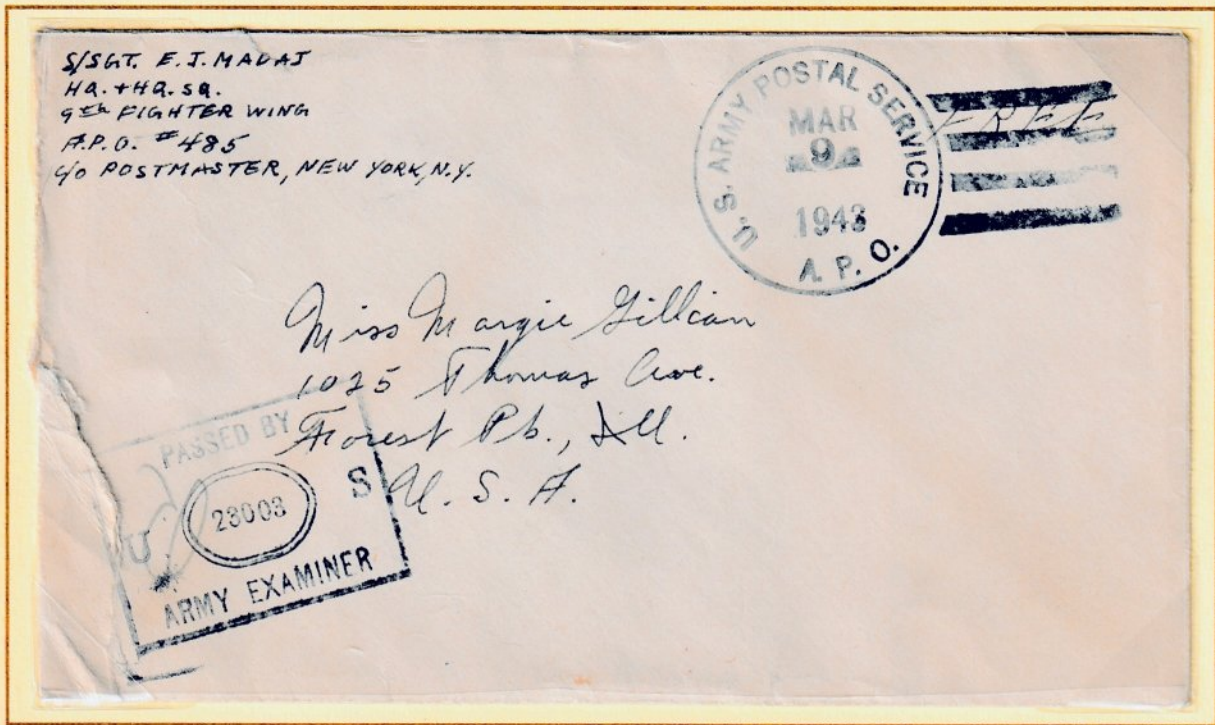 S/SGT. E.J. MADAJ
HQ. + HQ. SQ.
9th FIGHTER WING
A.P.O. #485
c/o POSTMASTER, NEW YORK, N.Y.
U.S. ARMY POSTAL SERVICE
MAR
9
1943
A.P.O.
FREE
Miss Margie Gillian
1025 Thomas Ave.
Forest Pk., Ill.
U. S. A.
PASSED BY
U 23003 S
ARMY EXAMINER